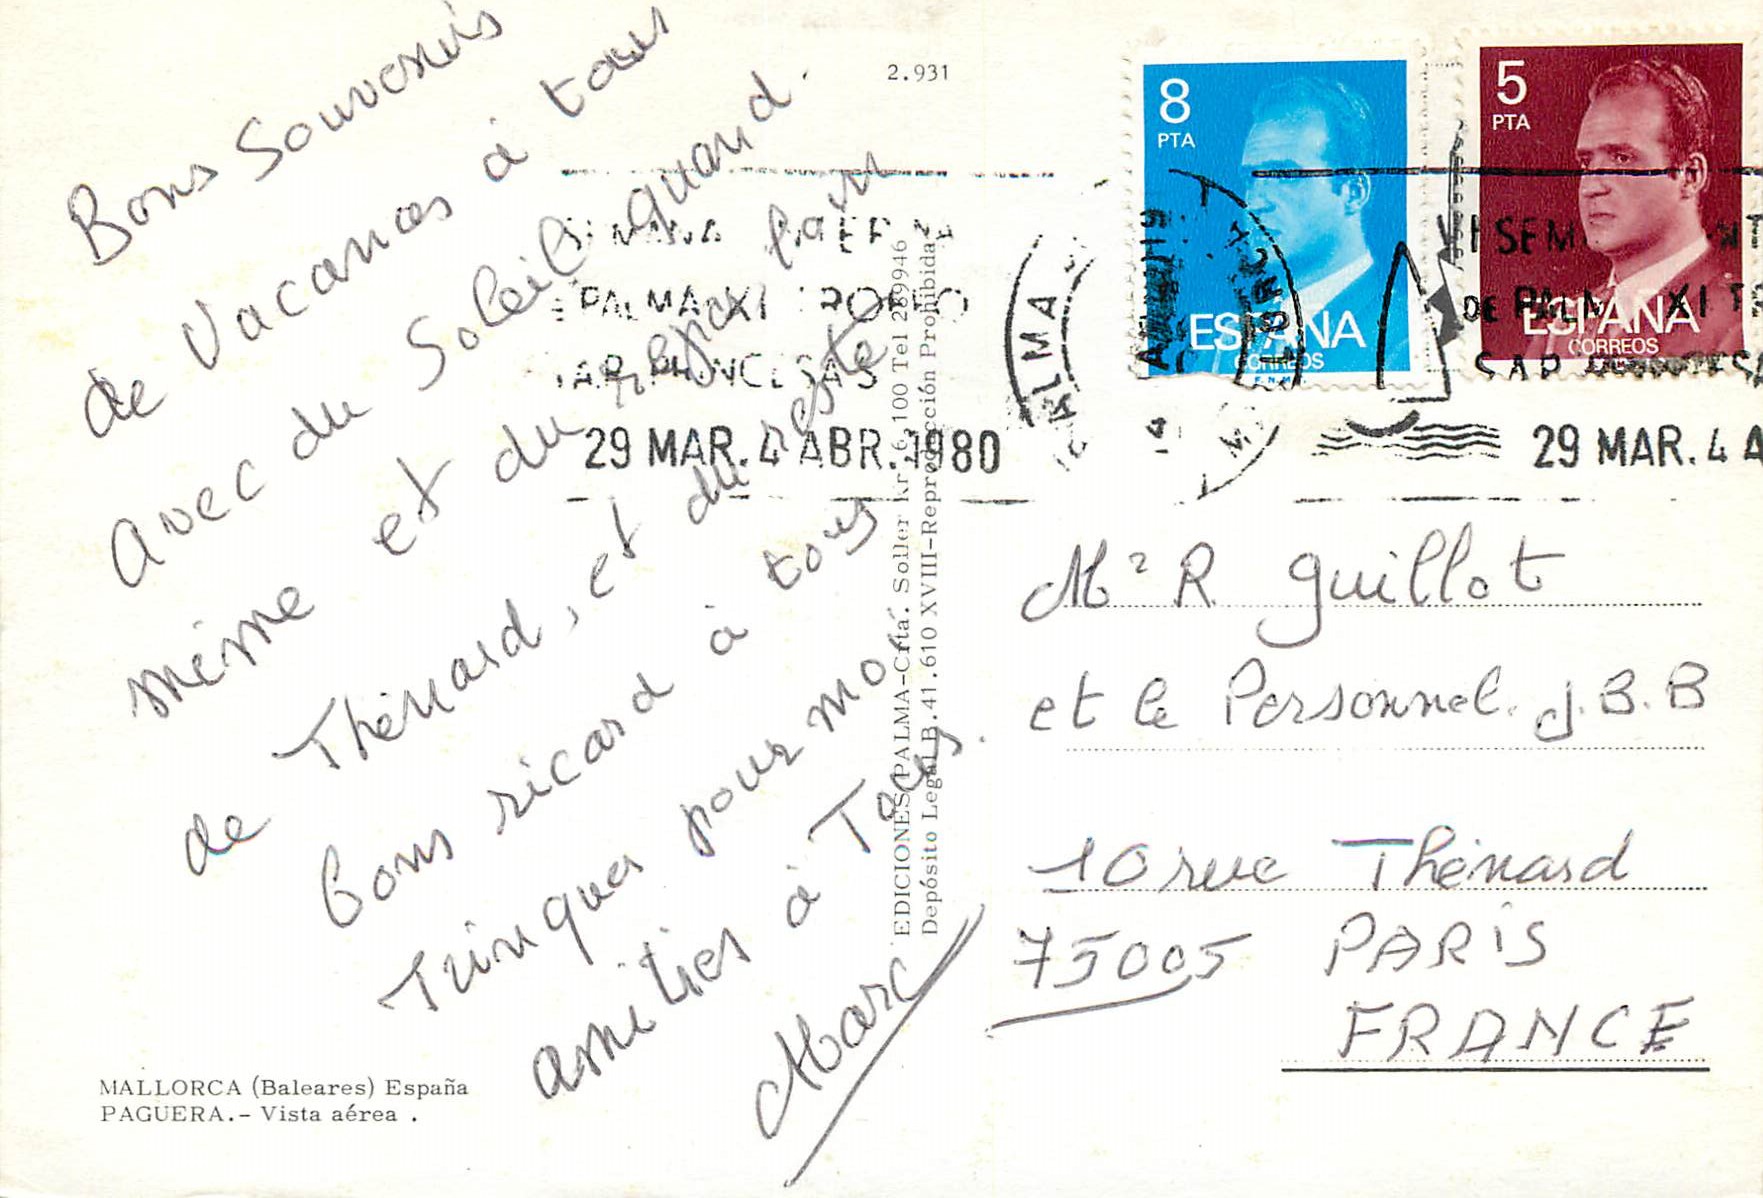 Bons Souvenirs
de Vacances à tous
avec du Soleil quand
même et du repos loin
de Thénard, et du reste
bons ricard à tous
Trinquer pour moi
amitiés à Tous.
Marc
MALLORCA (Baleares) España
PAGUERA.- Vista aérea .
2.931
EDICIONES PALMA-Crta. Soller Kr. 6,100 Tel 289946
Depósito Legal B.41.610 XVIII-Reproducción Prohibida
8
PTA
ESPAÑA
CORREOS
5
PTA
ESPAÑA
CORREOS
PALMA XI TROFEO
29 MAR. 4 ABR. 1980
PALMA
VI SEM
DE PALMA XI T
29 MAR. 4 A
Mr R Guillot
et le Personnel. J.B.B
10 rue Thénard
75005 PARIS
FRANCE